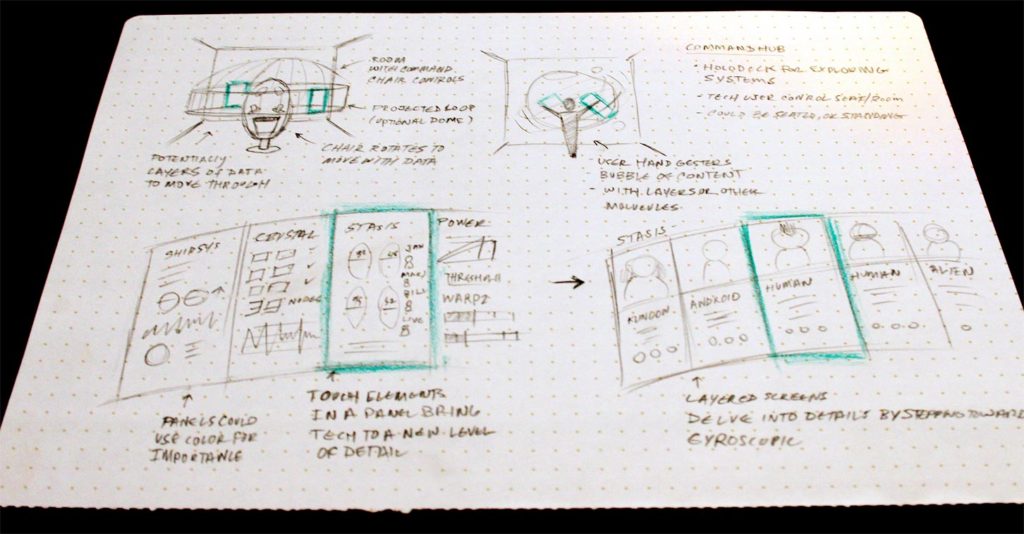 ROOM
WITH COMMAND
CHAIR CONTROLS
PROJECTED LOOP
(OPTIONAL DOME)
CHAIR ROTATES TO
MOVE WITH DATA
POTENTIALLY
LAYERS OF DATA
TO MOVE THROUGH
- USER HAND GESTERS
BUBBLE OF CONTENT
- WITH LAYERS OR OTHER
MOLECULES.
COMMAND HUB
• HOLODECK FOR EXPLORING
SYSTEMS
- TECH USER CONTROL SEAT/ROOM
- COULD BE SEATED, OR STANDING
SHIPSYS
CRYSTAL
NODES
STASIS
JAN
MARJ
BILL
LIVE
POWER
THRESHOLD
WARP2
PANELS COULD
USE COLOR FOR
IMPORTANCE
TOUCH ELEMENTS
IN A PANEL BRING
TECH TO A NEW LEVEL
OF DETAIL
STASIS
ANDROID
HUMAN
HUMAN
ALIEN
LAYERED SCREENS
DELVE INTO DETAILS BY STEPPING TOWARD
GYROSCOPIC